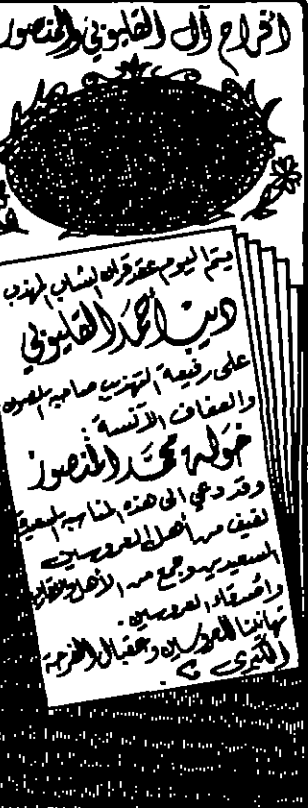 أفراح آل القليوبي والمنصور
يتم اليوم عقد قران الشاب المهذب
ديب أحمد القليوبي
على رفيعة التهذيب صاحبة الصون
والعفاف الآنسة
خولة محمد المنصور
وقد دعي الى هذه المناسبة السعيدة
لفيف من أهل العروسين
السعيدين وجمع من الأهل
واصدقاء العروسين.
تهانينا للعروسين وعقبال الفرحة
الكبرى